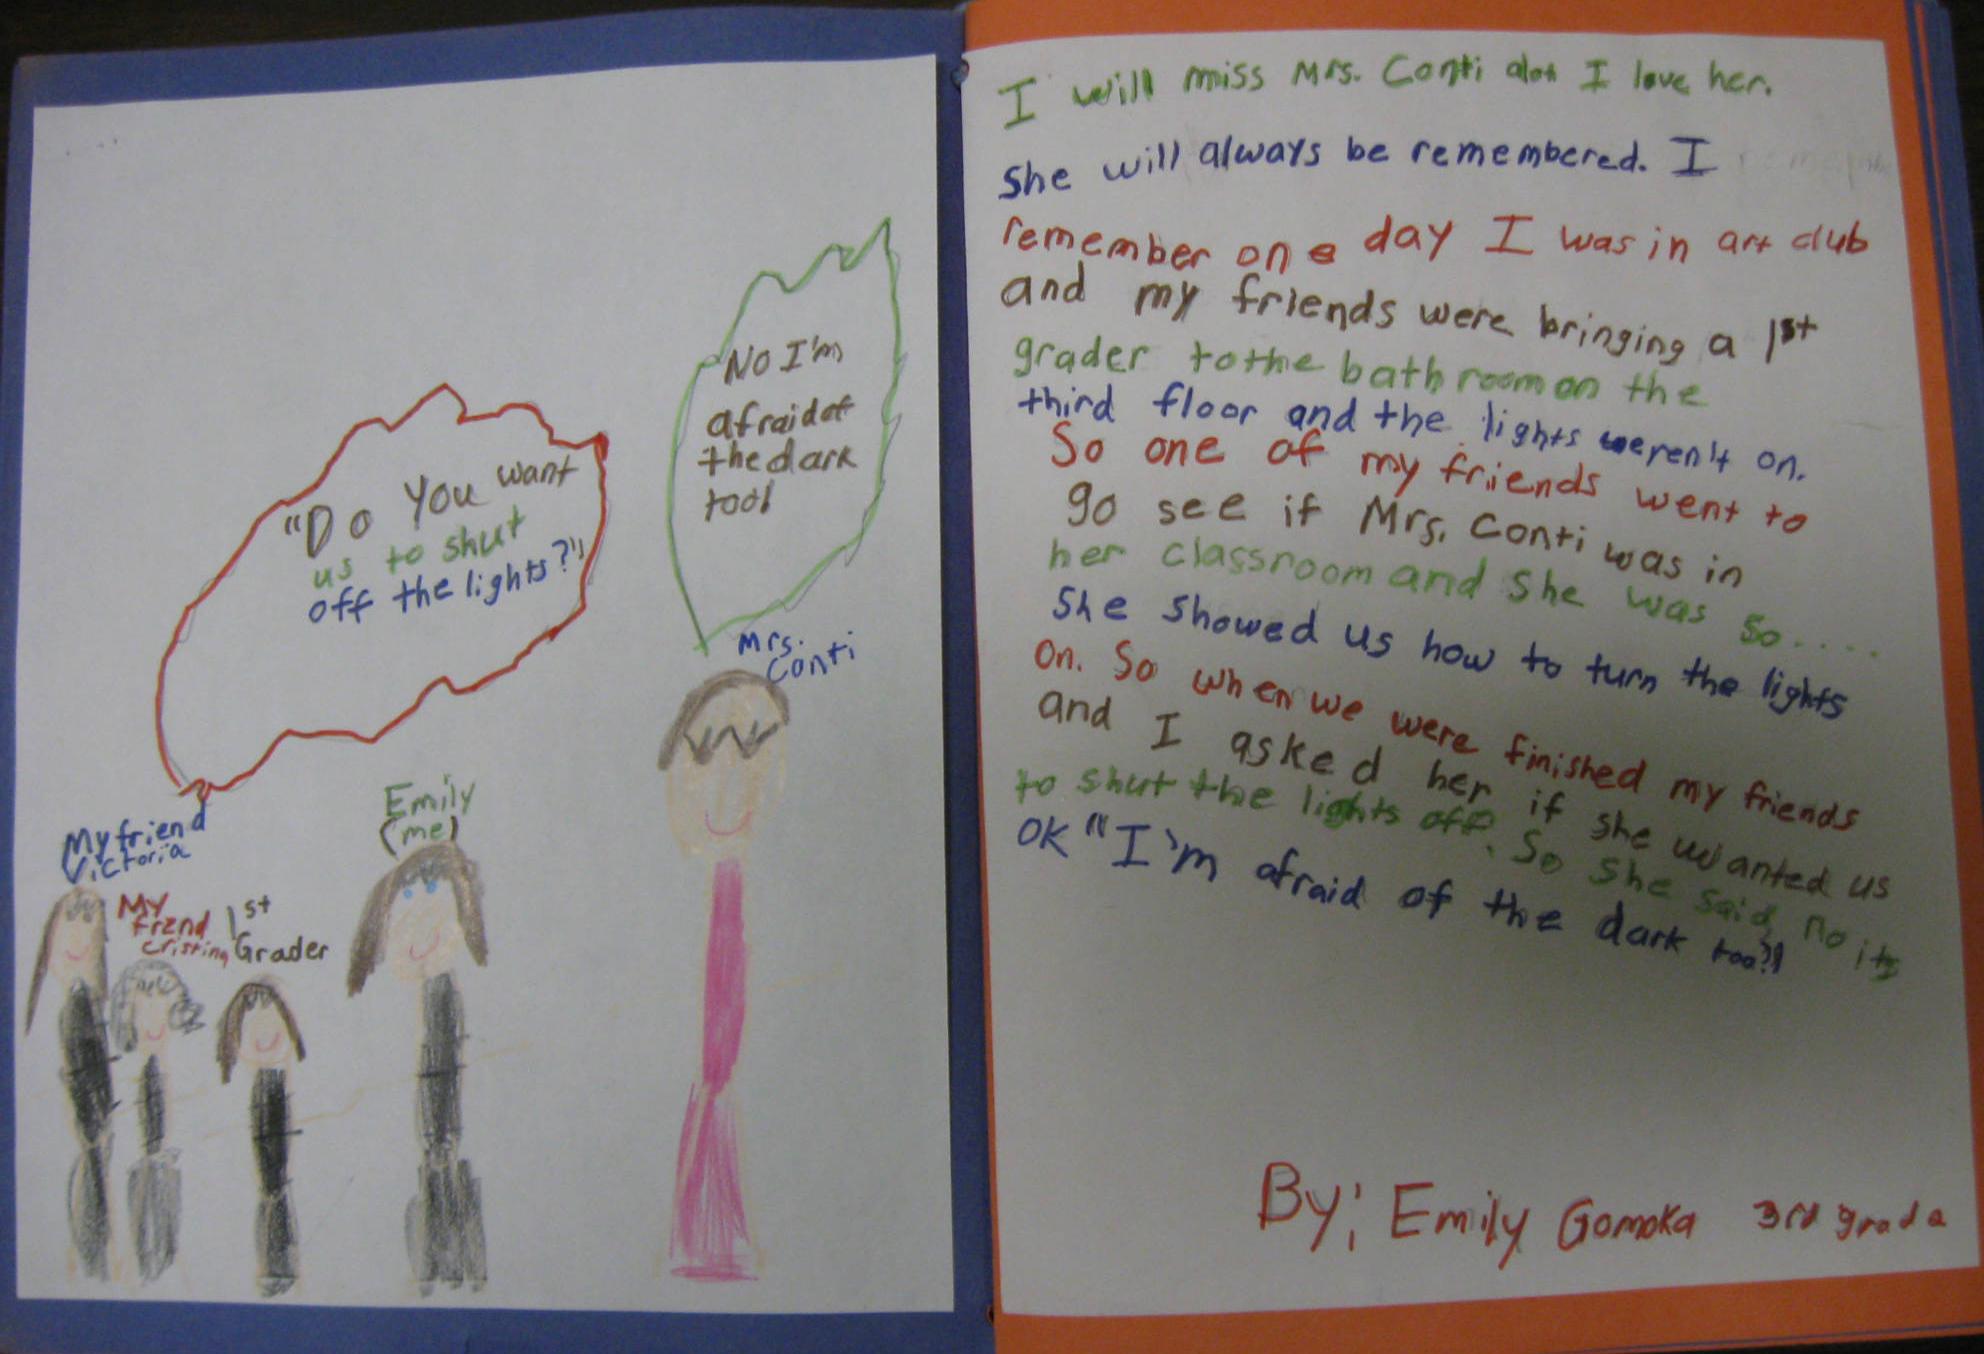 "Do you want
us to shut
off the lights?"
No I'm
afraid of
the dark
too!
Mrs.
Conti
My friend
Victoria
My
frend
cristing
1st
Grader
Emily
(me)
I will miss Mrs. Conti alot I love her.
She will always be remembered. I
remember one day I was in art club
and my friends were bringing a 1st
grader to the bathroom on the
third floor and the lights weren't on.
So one of my friends went to
go see if Mrs. Conti was in
her classroom and she was so.....
she showed us how to turn the lights
on. So when we were finished my friends
and I asked her if she wanted us
to shut the lights off. So she said no its
OK "I'm afraid of the dark too?!
By; Emily Gomoka 3rd grade